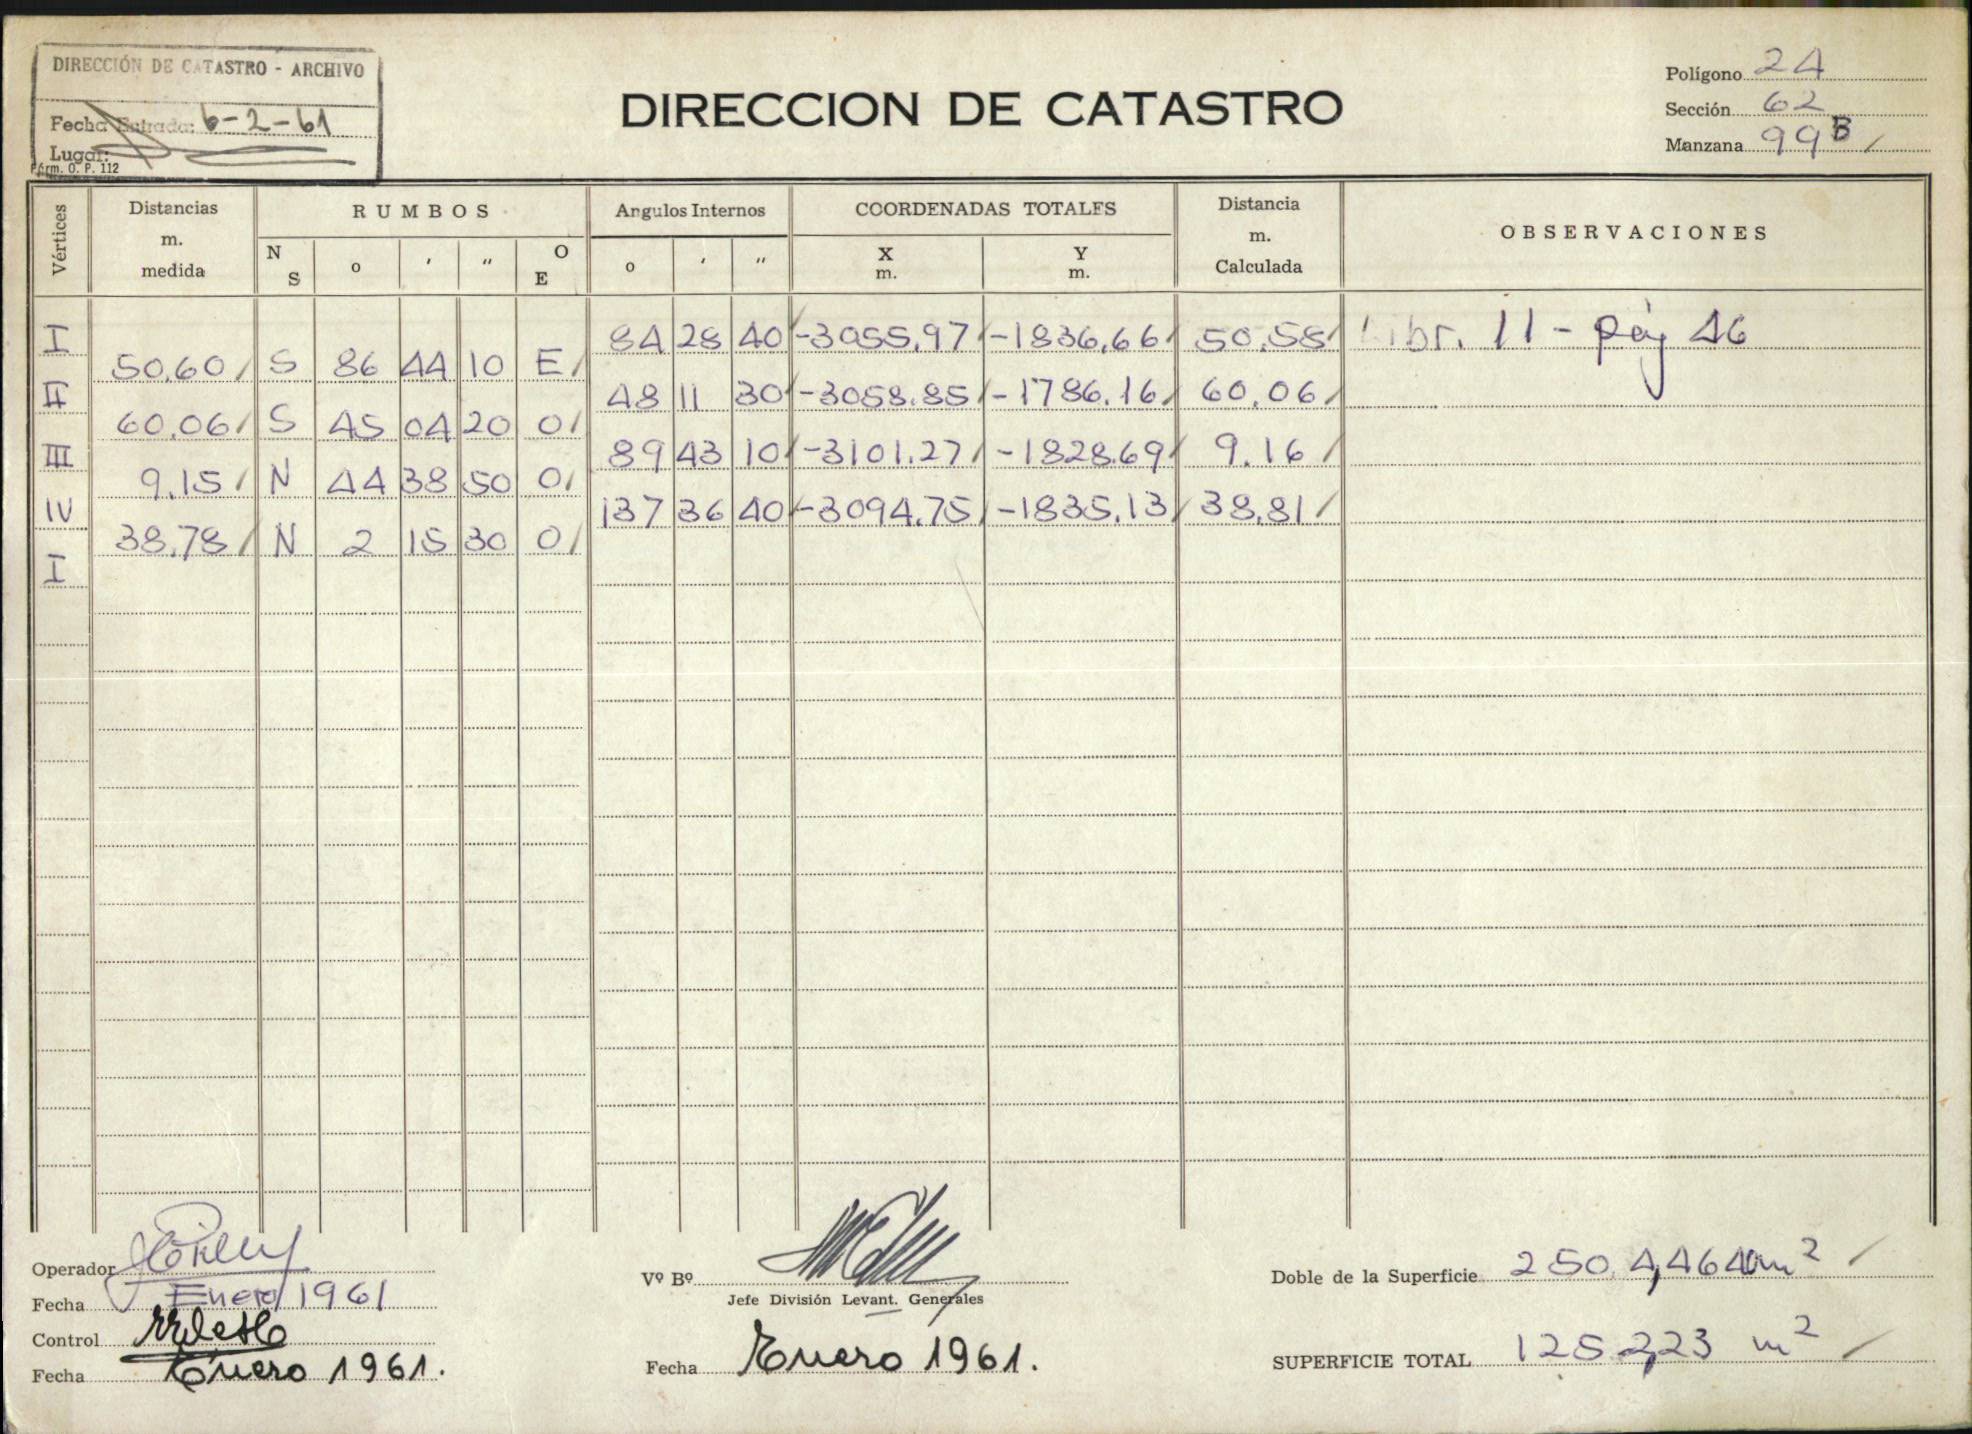 DIRECCIÓN DE CATASTRO - ARCHIVO
Fecha Entrada: 6-2-61
Lugar:
Fórm. O. P. 112
DIRECCION DE CATASTRO
Polígono 24
Sección 62
Manzana 99B /
Vértices Distancias m. medida RUMBOS Angulos Internos COORDENADAS TOTALES Distancia m. Calculada OBSERVACIONES
N S o ' " O E o ' " X m. Y m.
I 84 28 40 -3055.97 -1836.66 50.58 Libr. 11 - pág 46
50.60 S 86 44 10 E
II 48 11 30 -3058.85 -1786.16 60.06
60.06 S 45 04 20 O
III 89 43 10 -3101.27 -1828.69 9.16
9.15 N 44 38 50 O
IV 137 36 40 -3094.75 -1835.13 38.81
38.78 N 2 15 30 O
I
Operador
Fecha Enero 1961
Control
Fecha Enero 1961.
Vº Bº
Jefe División Levant. Generales
Fecha Enero 1961.
Doble de la Superficie 2504,4640 m2
SUPERFICIE TOTAL 1252,23 m2